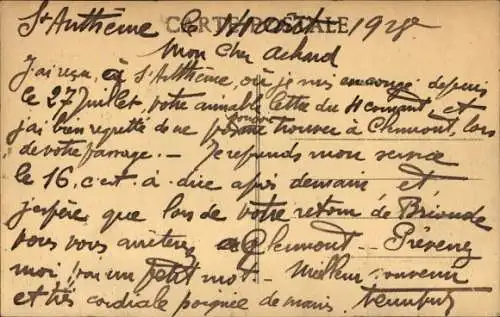 CARTE POSTALE
St Anthème le 14 Août 1928
Mon Cher Achard
J'ai reçu, à St Anthème, où je suis en congé depuis
le 27 Juillet, votre aimable lettre du 4 courant, et
j'ai bien regretté de ne pouvoir me trouver à Clermont, lors
de votre passage. - Je reprends mon service
le 16, c'est à dire après demain, et
j'espère que lors de votre retour de Brioude
vous vous arrêterez à Clermont - Prévenez
moi par un petit mot - Meilleur souvenir
et très cordiale poignée de mains.